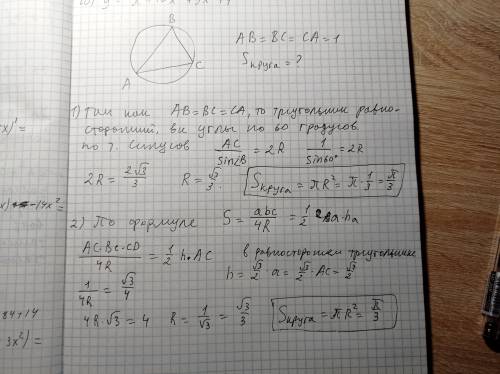 B
A
C
AB = BC = CA = 1
Sкруга = ?
1) Так как AB = BC = CA, то треугольник равно-
сторонний, вс углы по 60 градусов.
по т. синусов AC/sin∠B = 2R 1/sin60° = 2R
2R = 2√3/3 R = √3/3. Sкруга = πR² = π·1/3 = π/3
2) По формуле S = abc/4R = 1/2 a·ha
AC·BC·CD/4R = 1/2 h·AC в равностороннем треугольнике
h = √3/2 · a = √3/2 · AC = √3/2
1/4R = √3/4
4R·√3 = 4 R = 1/√3 = √3/3 Sкруга = πR² = π/3
-14x² =
84+14
3x²) =